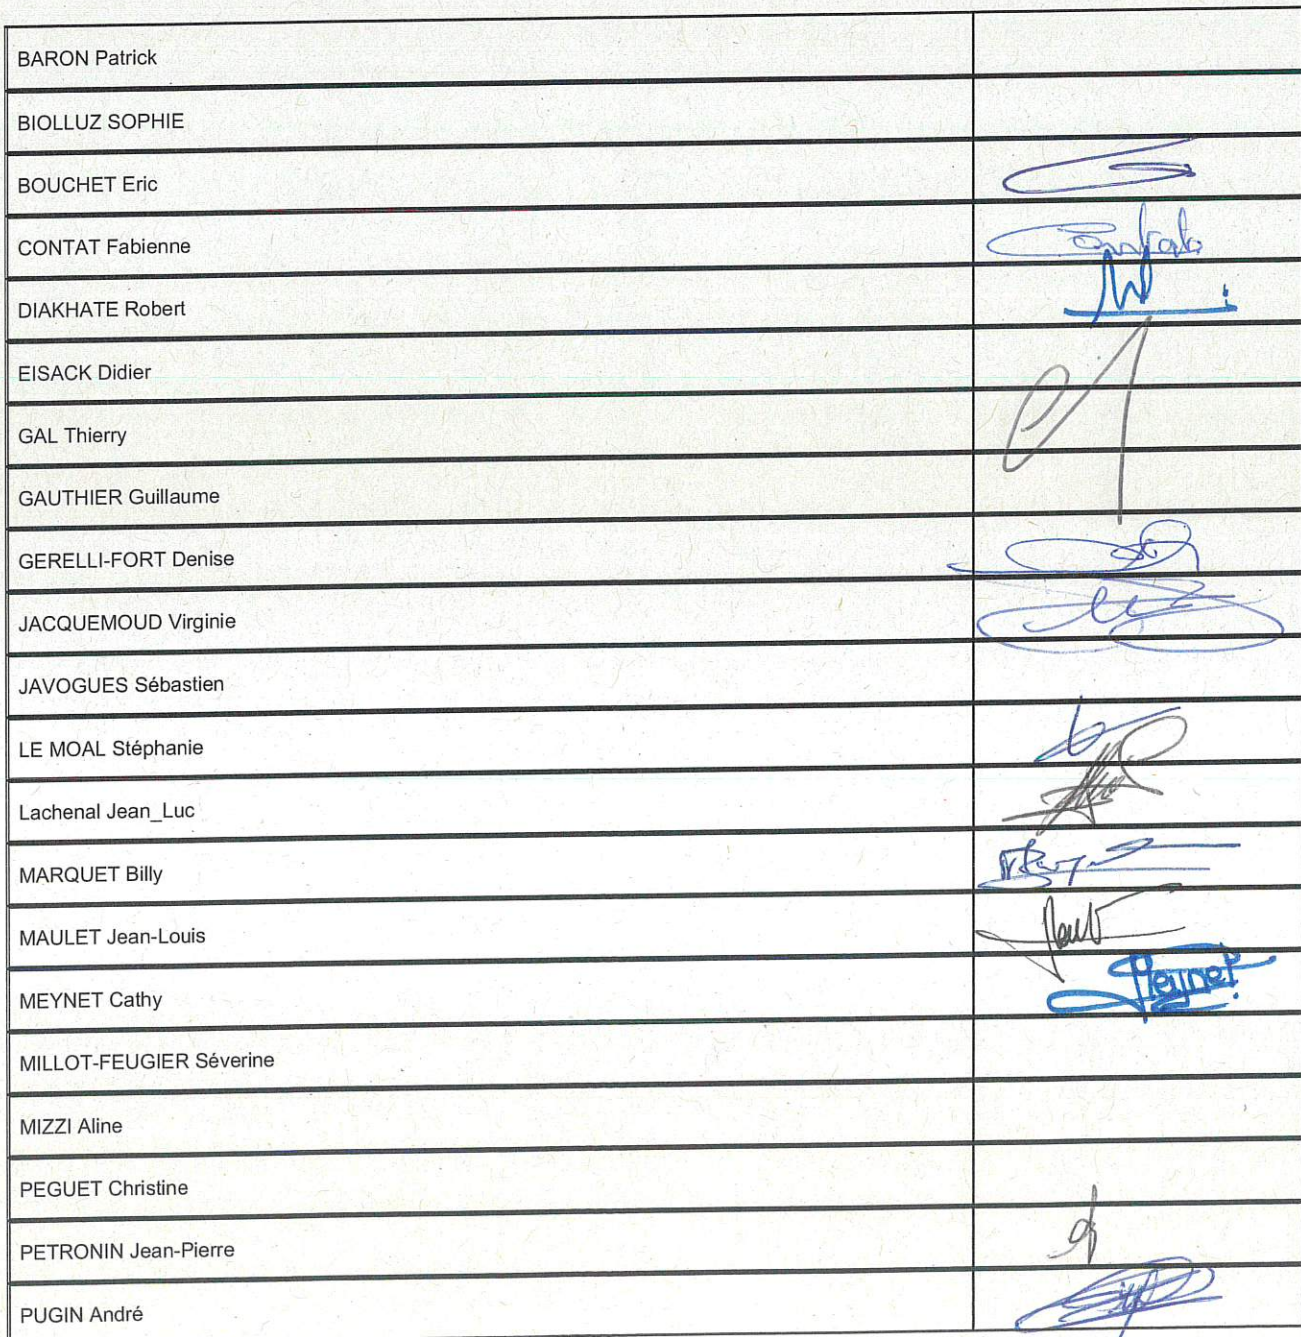 BARON Patrick
BIOLLUZ SOPHIE
BOUCHET Eric
CONTAT Fabienne
DIAKHATE Robert
EISACK Didier
GAL Thierry
GAUTHIER Guillaume
GERELLI-FORT Denise
JACQUEMOUD Virginie
JAVOGUES Sébastien
LE MOAL Stéphanie
Lachenal Jean_Luc
MARQUET Billy
MAULET Jean-Louis
MEYNET Cathy Meynet
MILLOT-FEUGIER Séverine
MIZZI Aline
PEGUET Christine
PETRONIN Jean-Pierre
PUGIN André